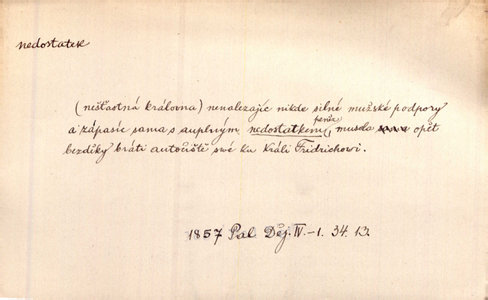 nedostatek
(nešťastná králowna) nenalezajíc nikde silné mužské podpory
a zápasíc sama s auplným nedostatkem peněz, musela opět
bezdíky bráti autočiště swé ku králi Fridrichowi.
1857 Pal. Děj. IV.-1. 34. 13.